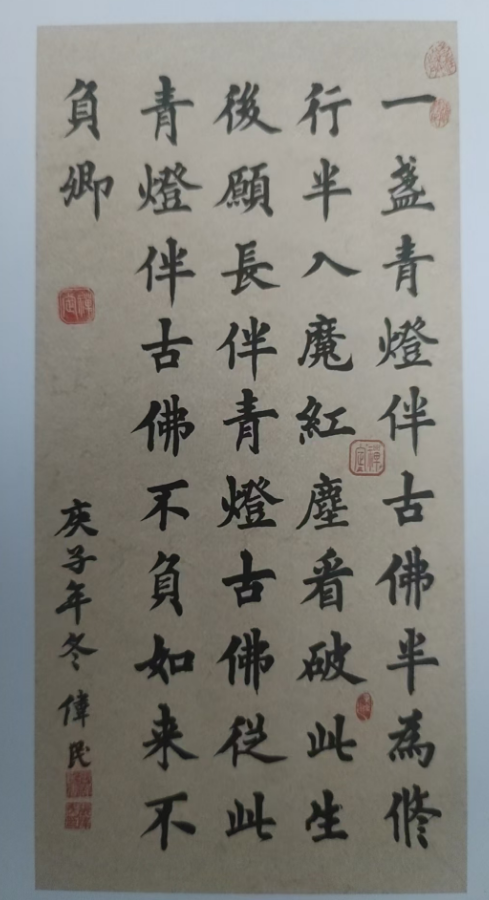 一盏青燈伴古佛半為修
行半入魔紅塵看破此生
後願長伴青燈古佛從此
青燈伴古佛不負如来不
負卿
庚子年冬偉民